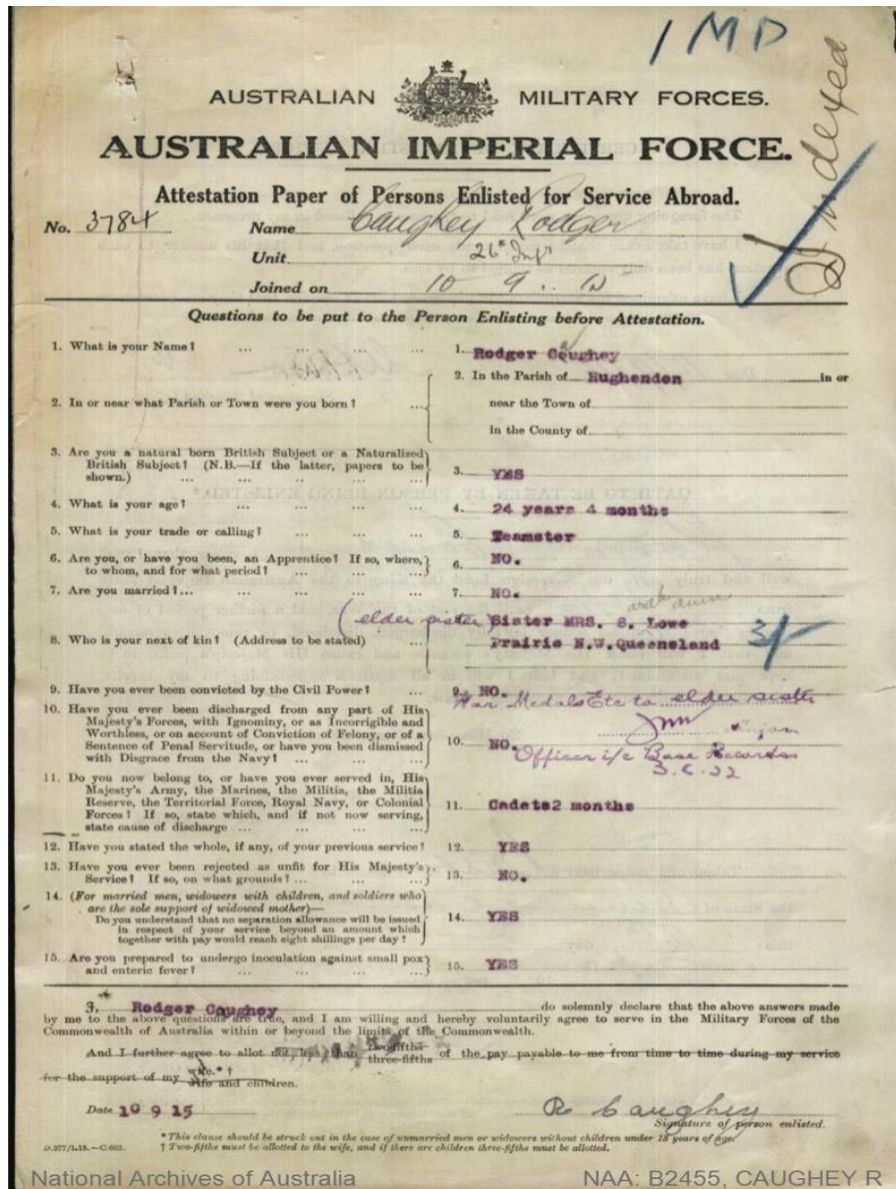 1 MD
Indexed
AUSTRALIAN MILITARY FORCES.
AUSTRALIAN IMPERIAL FORCE.
Attestation Paper of Persons Enlisted for Service Abroad.
No. 3784 Name Caughey Rodger
Unit 26th Inf
Joined on 10 9 . 15
Questions to be put to the Person Enlisting before Attestation.
1. What is your Name? ... ... ... ... 1. Rodger Caughey
2. In or near what Parish or Town were you born? ... 2. In the Parish of Hughendon in or
near the Town of
in the County of
3. Are you a natural born British Subject or a Naturalized
British Subject? (N.B.—If the latter, papers to be
shown.) ... ... ... ... 3. YES
4. What is your age? ... ... ... ... 4. 24 years 4 months
5. What is your trade or calling? ... ... ... 5. Teamster
6. Are you, or have you been, an Apprentice? If so, where,
to whom, and for what period? ... ... ... 6. NO.
7. Are you married?... ... ... ... ... 7. NO.
(elder sister) Sister MRS. S. Lowe
8. Who is your next of kin? (Address to be stated) Prairie N.W.Queensland 3/-
9. Have you ever been convicted by the Civil Power? ... 9. NO.
War Medals Etc to elder sister
10. Have you ever been discharged from any part of His
Majesty's Forces, with Ignominy, or as Incorrigible and
Worthless, or on account of Conviction of Felony, or of a
Sentence of Penal Servitude, or have you been dismissed
with Disgrace from the Navy? ... ... ... 10. NO.
Major
Officer i/c Base Records
3.6.22
11. Do you now belong to, or have you ever served in, His
Majesty's Army, the Marines, the Militia, the Militia
Reserve, the Territorial Force, Royal Navy, or Colonial
Forces? If so, state which, and if not now serving,
state cause of discharge ... ... ... ... 11. Cadets2 months
12. Have you stated the whole, if any, of your previous service? 12. YES
13. Have you ever been rejected as unfit for His Majesty's
Service? If so, on what grounds? ... ... ... 13. NO.
14. (For married men, widowers with children, and soldiers who
are the sole support of widowed mother)—
Do you understand that no separation allowance will be issued
in respect of your service beyond an amount which
together with pay would reach eight shillings per day? 14. YES
15. Are you prepared to undergo inoculation against small pox
and enteric fever? ... ... ... ... 15. YES
I, Rodger Caughey do solemnly declare that the above answers made
by me to the above questions are true, and I am willing and hereby voluntarily agree to serve in the Military Forces of the
Commonwealth of Australia within or beyond the limits of the Commonwealth.
And I further agree to allot not less than two-fifths three-fifths of the pay payable to me from time to time during my service
for the support of my wife.*† wife and children.
Date 10 9 15 R Caughey
Signature of person enlisted.
* This clause should be struck out in the case of unmarried men or widowers without children under 18 years of age.
D.377/1.15.—C.602. † Two-fifths must be allotted to the wife, and if there are children three-fifths must be allotted.
National Archives of Australia NAA: B2455, CAUGHEY R